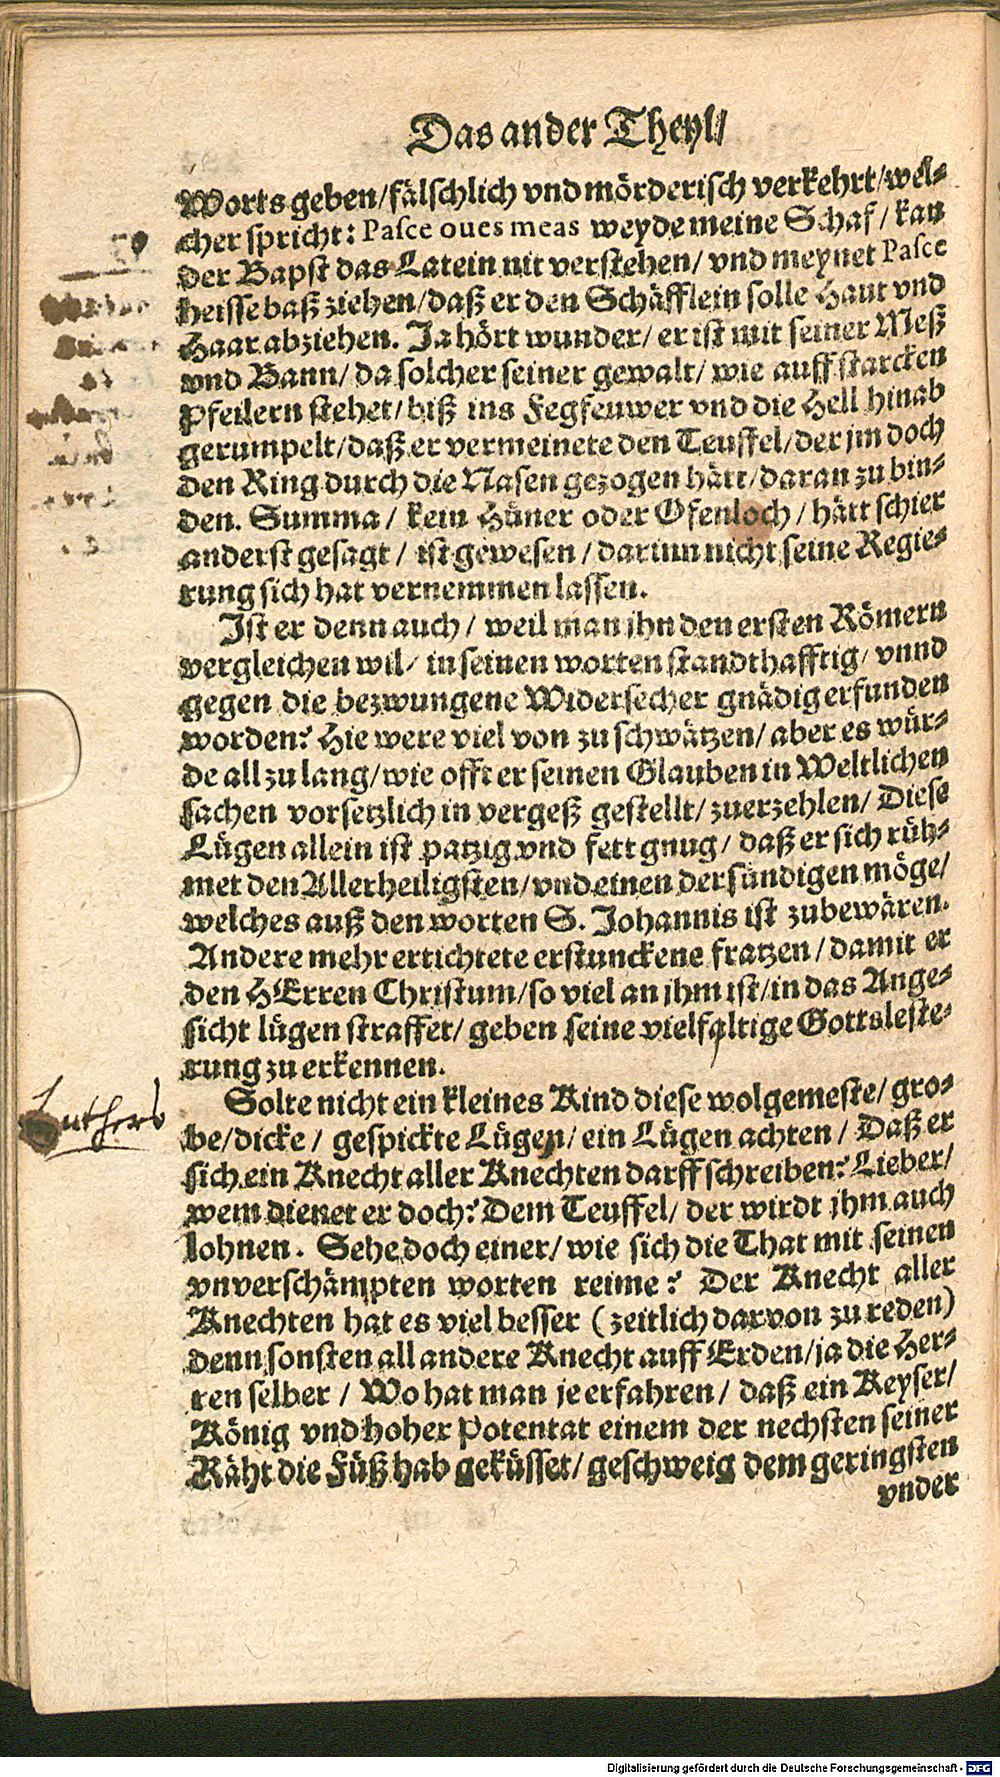 Das ander Theyl/
Worts geben/fälschlich vnd mörderisch verkehrt/wel⸗
cher spricht: Pasce oues meas weyde meine Schaf/ kan
der Bapst das Latein nit verstehen/ vnd meynet Pasce
heisse baß ziehen/daß er den Schäfflein solle Haut vnd
Haar abziehen. Ja hört wunder/ er ist mit seiner Meß
vnd Bann/ da solcher seiner gewalt/ wie auff starcken
Pfeilern stehet/biß ins Fegfeuwer vnd die Hell hinab
gerumpelt/daß er vermeinete den Teuffel/der jm doch
den Ring durch die Nasen gezogen hätt/daran zu bin⸗
den. Summa/ kein Hüner oder Ofenloch/ hätt schier
anderst gesagt/ ist gewesen/darinn nicht seine Regie⸗
rung sich hat vernemmen lassen.
Ist er denn auch/ weil man jhn den ersten Römern
vergleichen wil/ in seinen worten standthafftig/ vnnd
gegen die bezwungene Widersecher gnädig erfunden
worden? Hie were viel von zu schwätzen/ aber es wür⸗
de all zu lang/wie offt er seinen Glauben in Weltlichen
sachen vorsetzlich in vergeß gestellt/ zuerzehlen/ Diese
Lügen allein ist patzig vnd fett gnug/ daß er sich rüh⸗
met den Allerheiligsten/vnd einen der sündigen möge/
welches auß den worten S. Johannis ist zubewären.
Andere mehr ertichtete erstunckene fratzen/damit er
den HErren Christum/so viel an jhm ist/in das Ange⸗
sicht lügen straffet/ geben seine vielfaltige Gottsleste⸗
rung zu erkennen.
Luthers
Solte nicht ein kleines Kind diese wolgemeste/ gro⸗
be/dicke/ gespickte Lügen/ ein Lügen achten/ Daß er
sich ein Knecht aller Knechten darff schreiben? Lieber/
wem dienet er doch? Dem Teuffel/ der wirdt jhm auch
lohnen. Sehe doch einer/ wie sich die That mit seinen
vnverschämpten worten reime? Der Knecht aller
Knechten hat es viel besser (zeitlich darvon zu reden)
denn sonsten all andere Knecht auff Erden/ja die Her⸗
ren selber/ Wo hat man je erfahren/ daß ein Keyser/
König vnd hoher Potentat einem der nechsten seiner
Räht die Füß hab geküsset/ geschweig dem geringsten
vnder
Digitalisierung gefördert durch die Deutsche Forschungsgemeinschaft - DFG